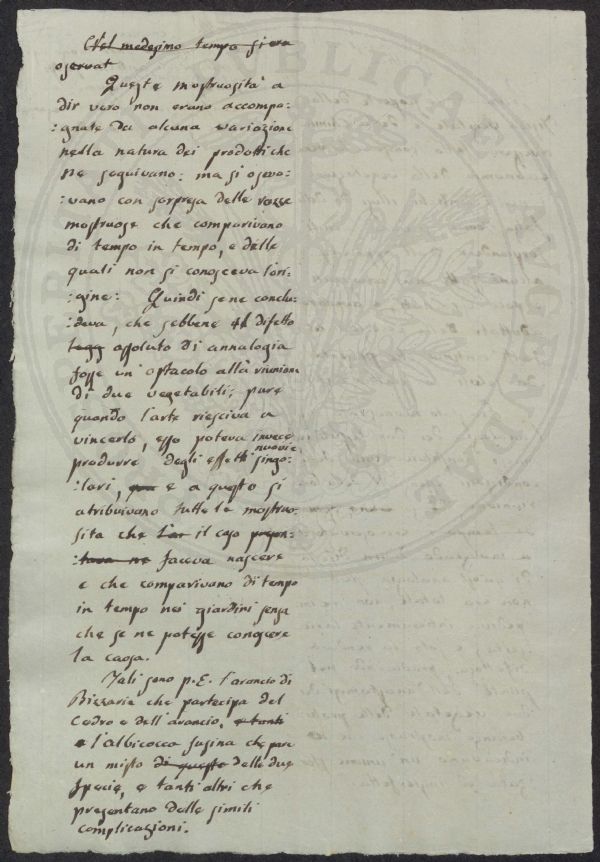 Nel medesimo tempo si era
oservat
Queste mostruosità a
dir vero non erano accompa:
:gnate da alcuna variazione
nella natura dei prodotti che
ne seguivano: ma si oservo:
:vano con sorpresa delle razze
mostruose che comparivano
di tempo in tempo, e delle
quali non si conosceva l'ori:
:gine: Quindi se ne conclu:
:deva, che sebbene il difetto
legg assoluto di annalogia
fosse un ostacolo alla riunione
di due vegetabili; pure
quando l'arte riesciva a
vincerlo, esso poteva invece
produrre degli effetti nuovi e singo:
:lari, e a questo si
atribuivano tutte le mostruo:
sita che l'ar il caso presen:
:tava ne faceva nascere
e che comparivano di tempo
in tempo nei giardini senza
che se ne potesse conoscere
la caosa.
Tali sono p. E. l'arancio di
Bizzaria che partecipa del
Cedro e dell'arancio, e tanti
e l'albicocco susina che pare
un misto di queste delle due
specie, e tanti altri che
presentano delle simili
complicazioni.